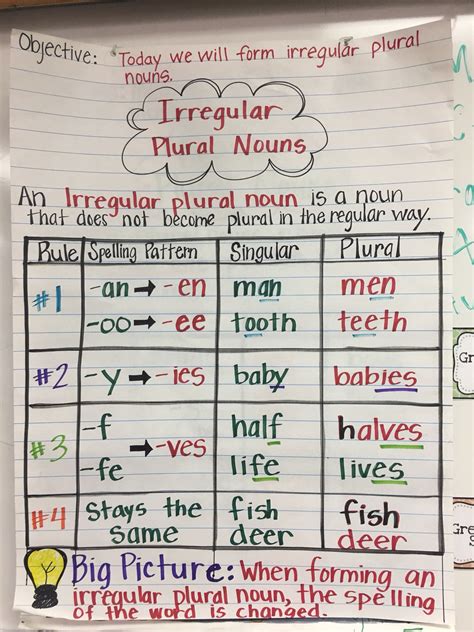 Objective: Today we will form irregular plural
nouns.
Irregular
Plural Nouns
An Irregular plural noun is a noun
that does not become plural in the regular way.
Rule Spelling Pattern Singular Plural
#1 -an → -en man men
-oo → -ee tooth teeth
#2 -y → -ies baby babies
#3 -f → -ves half halves
-fe life lives
#4 Stays the same fish fish
deer deer
Big Picture: When forming an
irregular plural noun, the spelling
of the word is changed.